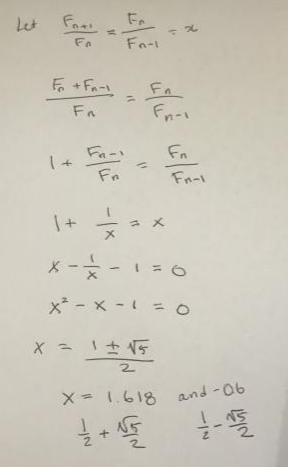 Let F_{n+1}/F_n = F_n/F_{n-1} = x
(F_n + F_{n-1})/F_n = F_n/F_{n-1}
1 + F_{n-1}/F_n = F_n/F_{n-1}
1 + 1/x = x
x - 1/x - 1 = 0
x² - x - 1 = 0
x = (1 ± √5)/2
x = 1.618 and -0.6
1/2 + √5/2 1/2 - √5/2